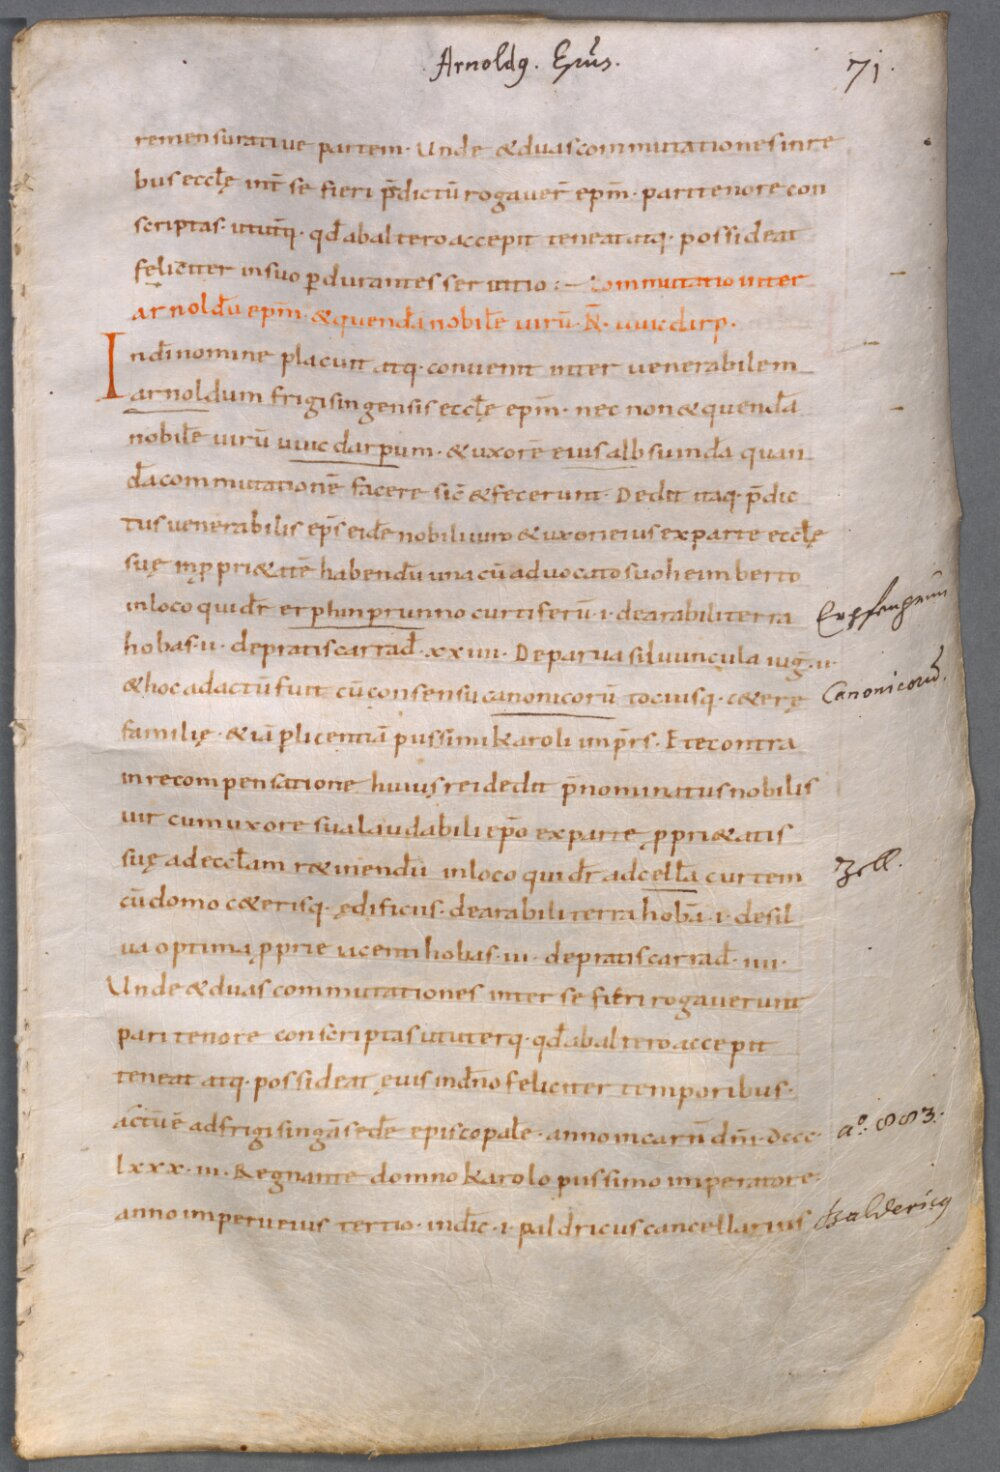 Arnoldꝯ. Ep̃us.
71.
remensurative partem · Unde &duascommutationesinte
bus eccłę int̃ se fieri p̄dictū rogaver̃ ep̄m · paritenore con
scriptas · ututq̃ · qđabalteroaccepit teneat atq · possideat
feliciter insuo ꝑdurantes servitio :– Commutatio inter
arnoldū ep̄m · &quendā nobilē virū · N̄ · uuicdirp .
Indīnomine placuit atq · convenit inter venerabilem
arnoldum frigisingensis eccłę ep̄m · nec non &quendā
nobilē virū uuicdarpum · &uxorē eius albsuuindā quan
dācommutationē facere sic̄ &fecerunt · Dedit itaq · p̄dic
tus venerabilis ep̄s eidē nobiliviro &uxorieius exparte eccłę
suę inꝓpri&atē habendū una cū advocato suo heimberto
inloco quidr̄ erphunprunno curtiferū · i · dearabiliterra
hobas · ii · depratiscarrađ · xxiiii · Deparva silvuncula iug̃ · ii ·
&hoc adactū fuit cū consensu canonicorū tociusq · c&erę
familię · &iā ꝑlicentiā piissimi karoli imp̄rs · Et econtra
inrecompensatione huius rei dedit p̄nominatus nobilis
vir cum uxore sua laudabili ep̄o exparte ꝓpri&atis
suę ad eccłam r&inendū inloco quidr̄ adcellā curtem
cū domo c&erisq · ędificiis · dearabiliterra hobā · i · desil
va optima ꝓprie iacenti hobas · iii · depratis carrađ · iiii ·
Unde &duas commutationes inter se fieri rogaverunt
pari tenore conscriptas ututerq · qđabaltero accepit
teneat atq · possideat ęuis indn̄o feliciter temporibus ·
actūē adfrigisingā sedē episcopalē · anno incarn̄ dn̄i · dccc ·
lxxx · iii · Regnante domno karolo piissimo imperatore ·
anno imperii eius tertio · indic̄ · i · paldricus cancellarius
Erpfenprun̄
Canonicorū.
Zell.
aº: 883.
Baldericꝯ